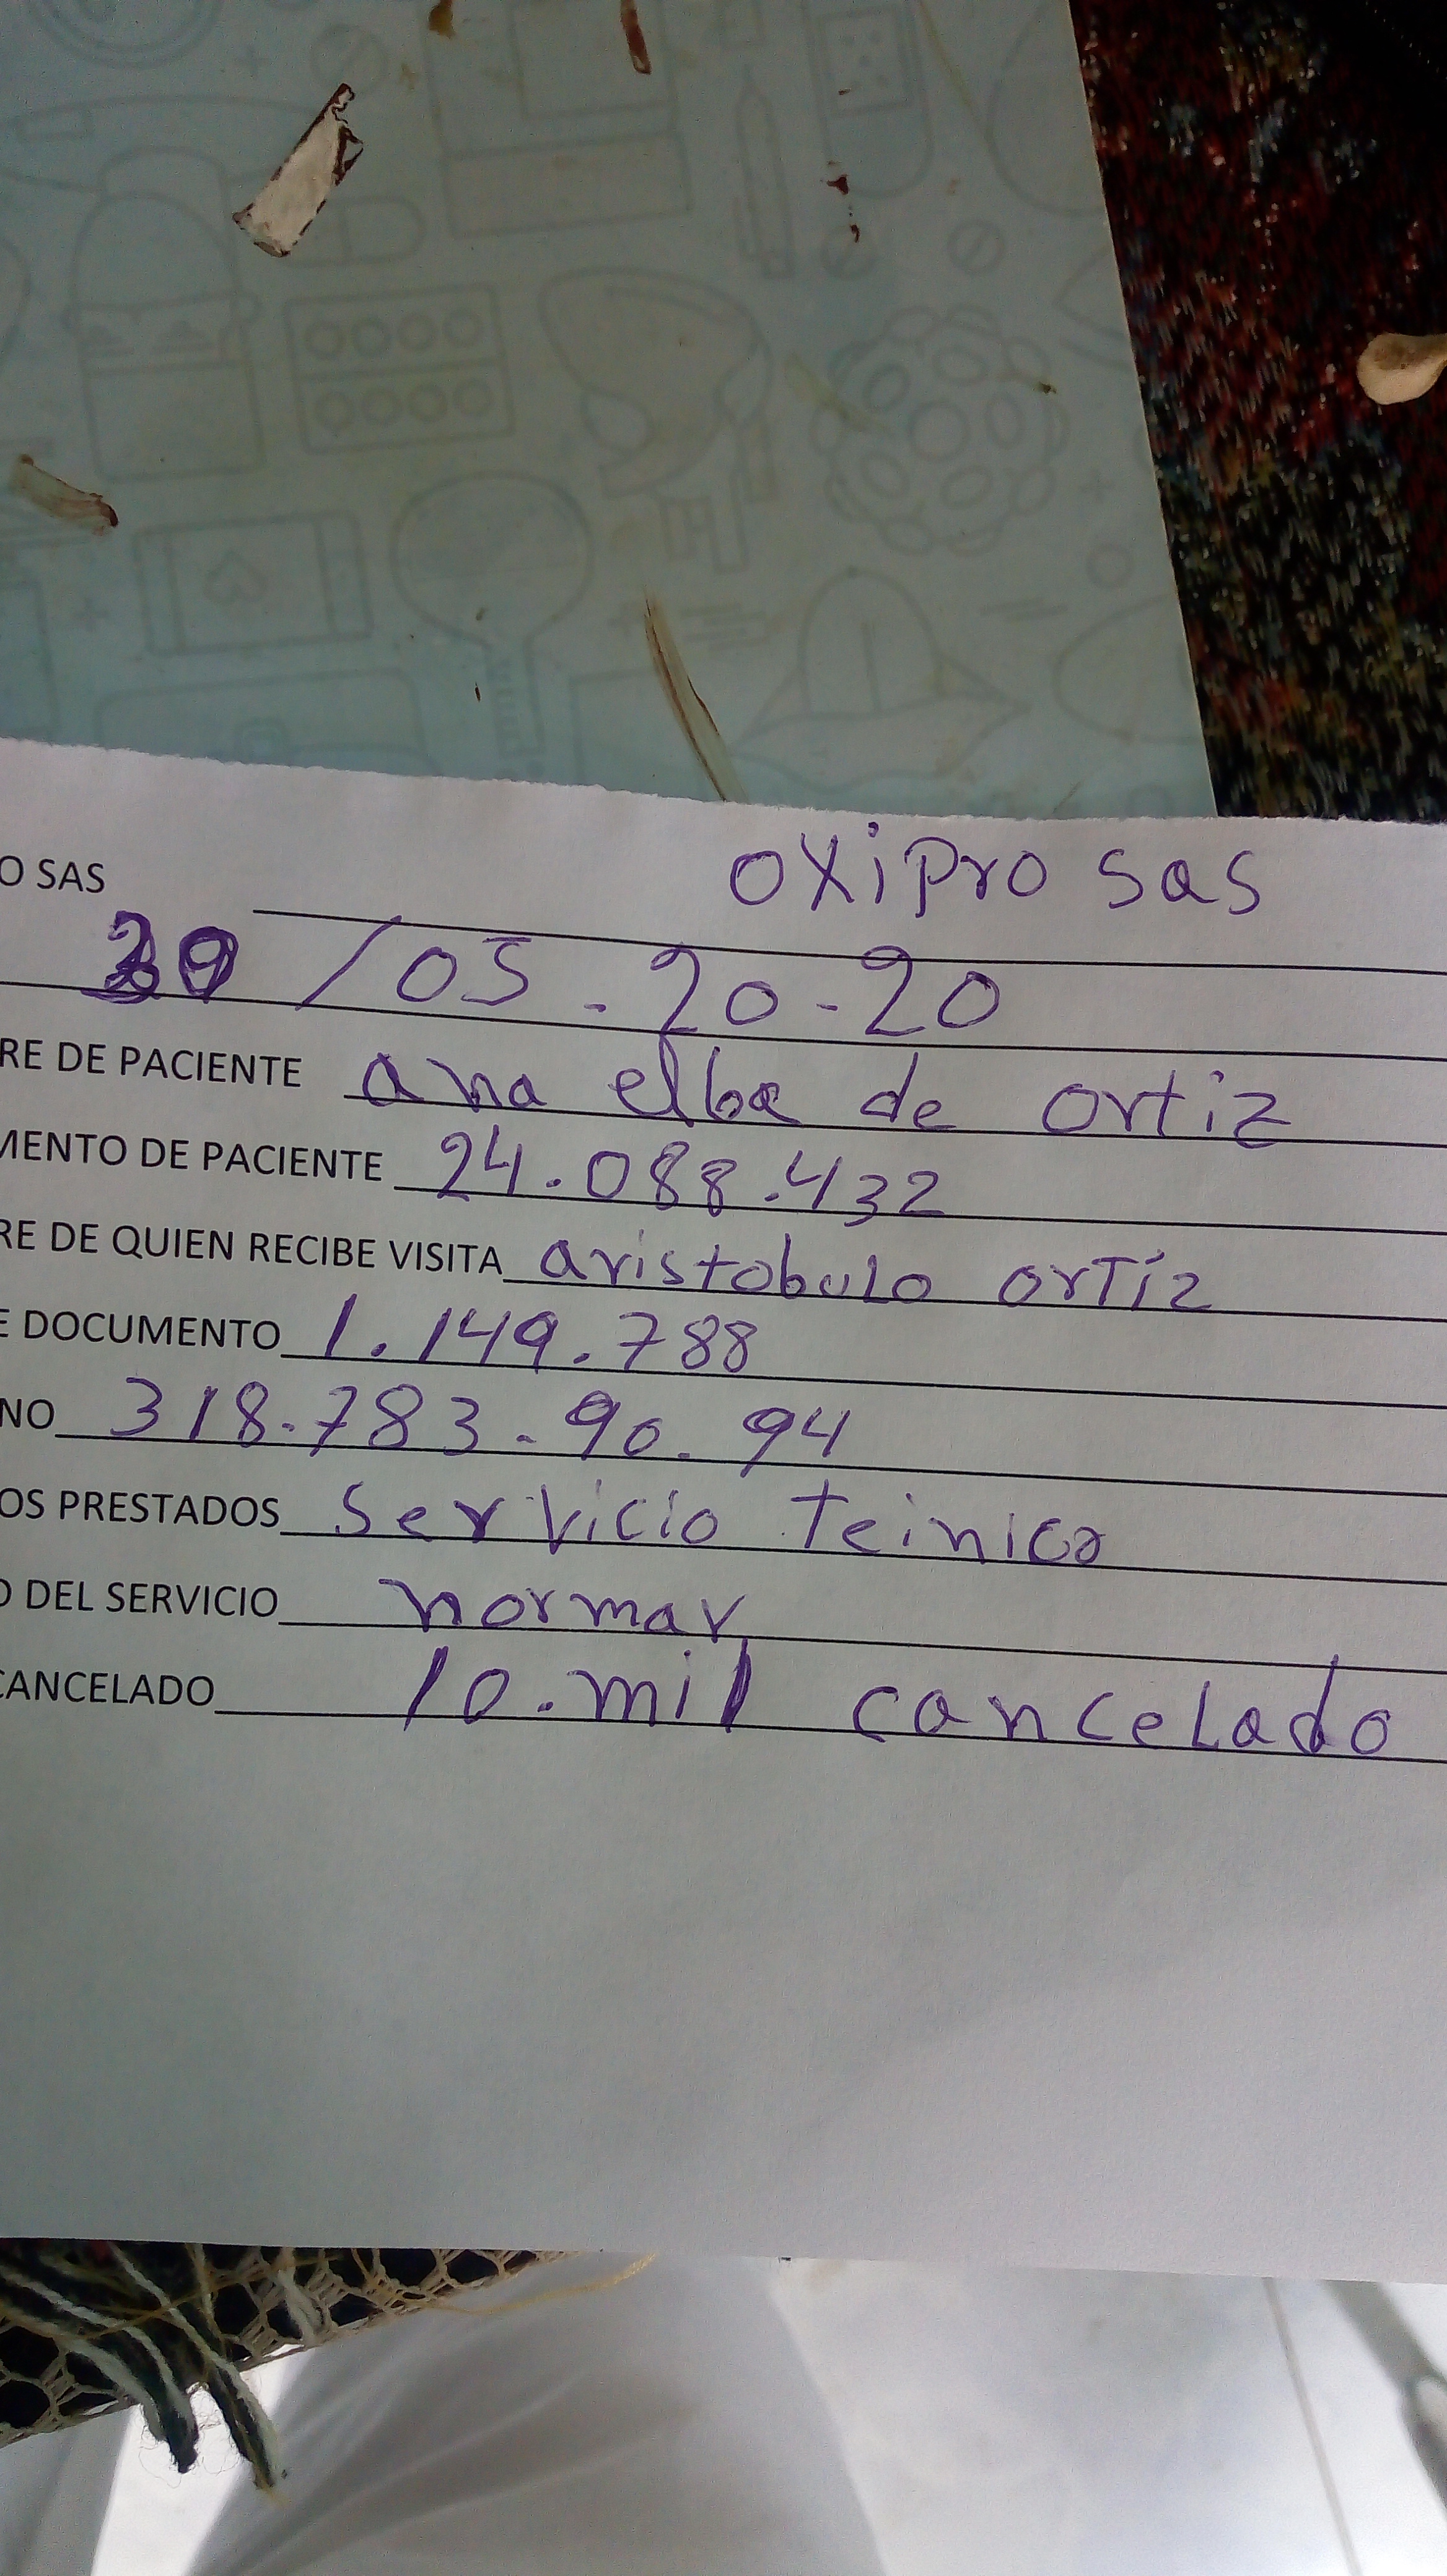 O SAS oxipro sas
/05.20-20
RE DE PACIENTE ana elba de ortiz
MENTO DE PACIENTE 24.088.432
RE DE QUIEN RECIBE VISITA aristobulo ortiz
E DOCUMENTO 1.149.788
NO 318.783.90.94
OS PRESTADOS servicio teinico
O DEL SERVICIO normar
CANCELADO 10.mil cancelado